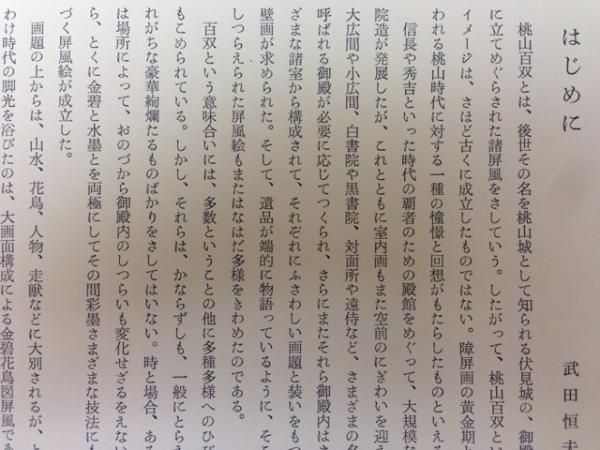 はじめに
武田恒夫
桃山百双とは、後世その名を桃山城として知られる伏見城の、御殿
に立てめぐらされた諸屏風をさしていう。したがって、桃山百双とい
イメージは、さほど古くに成立したものではない。障屏画の黄金期と
われる桃山時代に対する一種の憧憬と回想がもたらしたものといえる
信長や秀吉といった時代の覇者のための殿館をめぐって、大規模な
院造が発展したが、これとともに室内画もまた空前のにぎわいを迎え
大広間や小広間、白書院や黒書院、対面所や遠侍など、さまざまの名
呼ばれる御殿が必要に応じてつくられ、さらにまたそれら御殿内はさ
ざまな諸室から構成されて、それぞれにふさわしい画題と装いをもつ
壁画が求められた。そして、遺品が端的に物語っているように、そこ
しつらえられた屏風絵もまたはなはだ多様をきわめたのである。
百双という意味合いには、多数ということの他に多種多様へのひび
もこめられている。しかし、それらは、かならずしも、一般にとらえ
れがちな豪華絢爛たるものばかりをさしてはいない。時と場合、ある
は場所によって、おのづから御殿内のしつらいも変化せざるをえない
ら、とくに金碧と水墨とを両極にしてその間彩墨さまざまな技法にも
づく屏風絵が成立した。
画題の上からは、山水、花鳥、人物、走獣などに大別されるが、と
わけ時代の脚光を浴びたのは、大画面構成による金碧花鳥図屏風であ